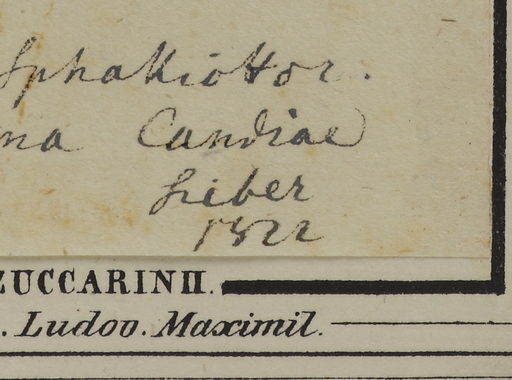 Sphakiottor.
na Candiae
Sieber
1822
ZUCCARINII.
. Ludov. Maximil.